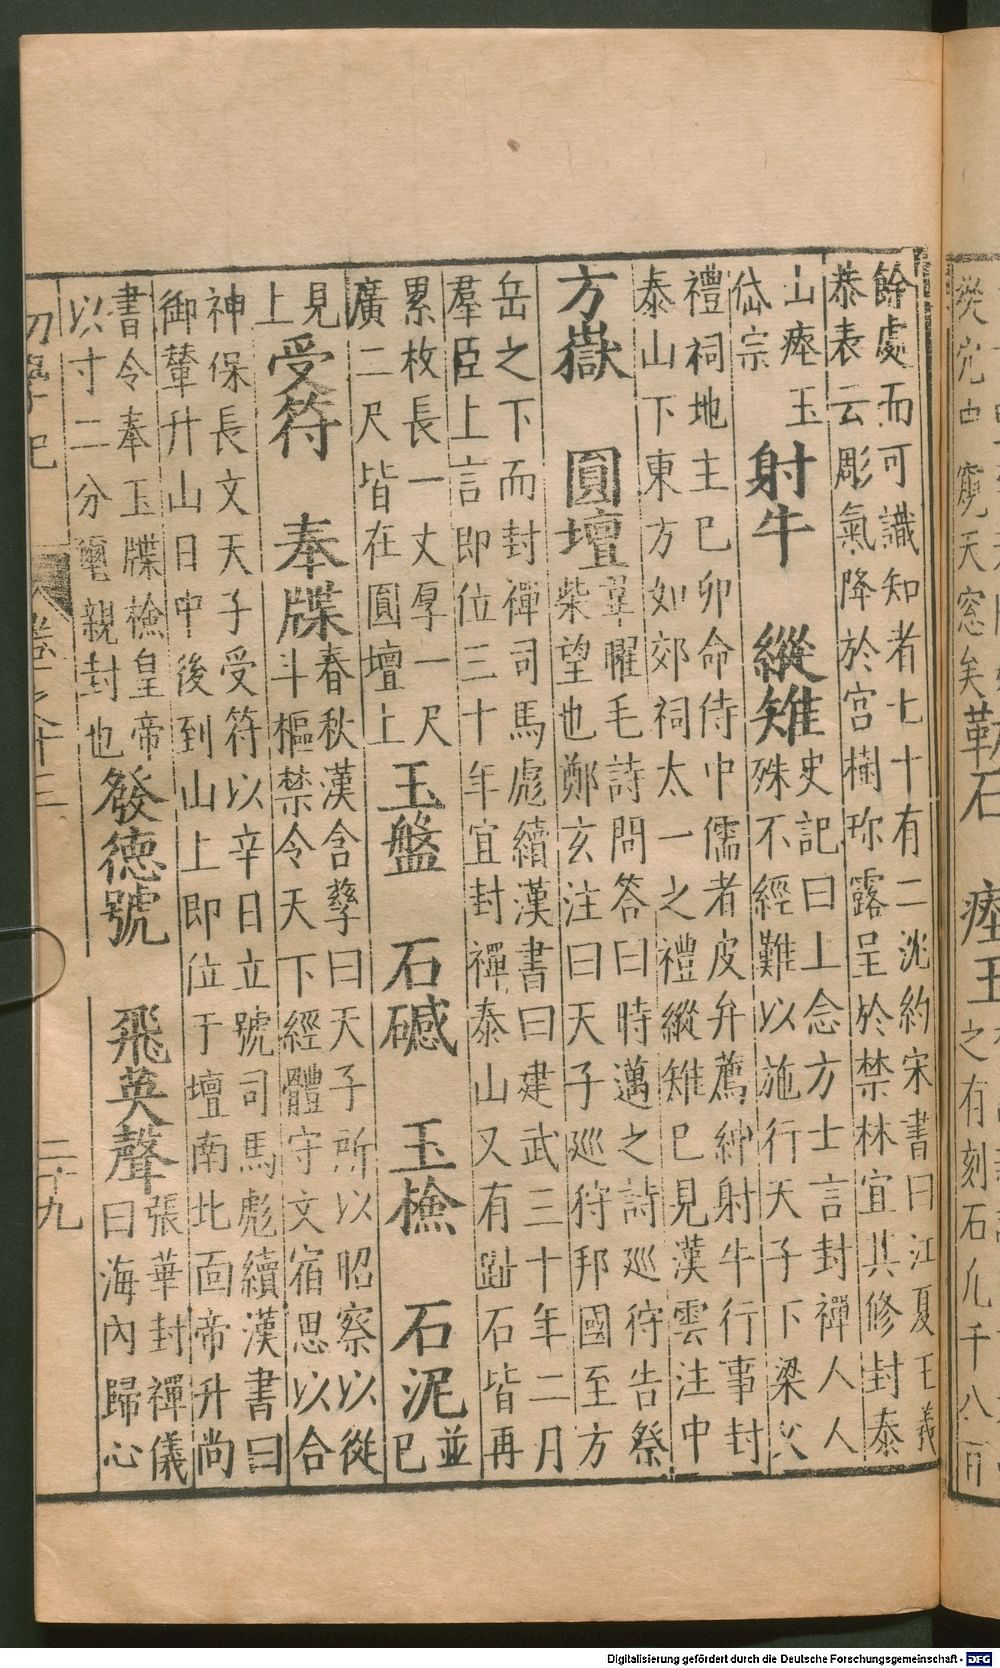 餘處而可識知者七十有二沈約宋書曰江夏王義
恭表云彫氣降於宮樹珎露呈於禁林宜其修封泰
山瘞玉
岱宗
射牛 縱雉
史記曰上念方士言封禪人人
殊不經難以施行天子下梁父
禮祠地主已卯命侍中儒者皮弁薦紳射牛行事封
泰山下東方如郊祠太一之禮縱雉已見漢雲注中
方嶽 圓壇
韋曜毛詩問答曰時邁之詩巡狩告祭
柴望也鄭玄注曰天子巡狩邦國至方
岳之下而封禪司馬彪續漢書曰建武三十年二月
羣臣上言即位三十年宜封禪泰山又有石皆再
累枚長一丈厚一尺
廣二尺皆在圓壇上
玉盤 石礛 玉檢 石泥
並
已
見
上
受符 奉牒
春秋漢含孳曰天子所以昭察以從
斗樞禁令天下經體守文宿思以合
神保長文天子受符以辛日立號司馬彪續漢書曰
御輦升山日中後到山上即位于壇南北面帝升尚
書令奉玉牒檢皇帝
以寸二分璽親封也
發德號 飛英聲
張華封禪儀
曰海內歸心
初學記 卷之十三 二十九
天窓矣
石 瘞玉
之有刻石凡千八百
Digitalisierung gefördert durch die Deutsche Forschungsgemeinschaft - DFG